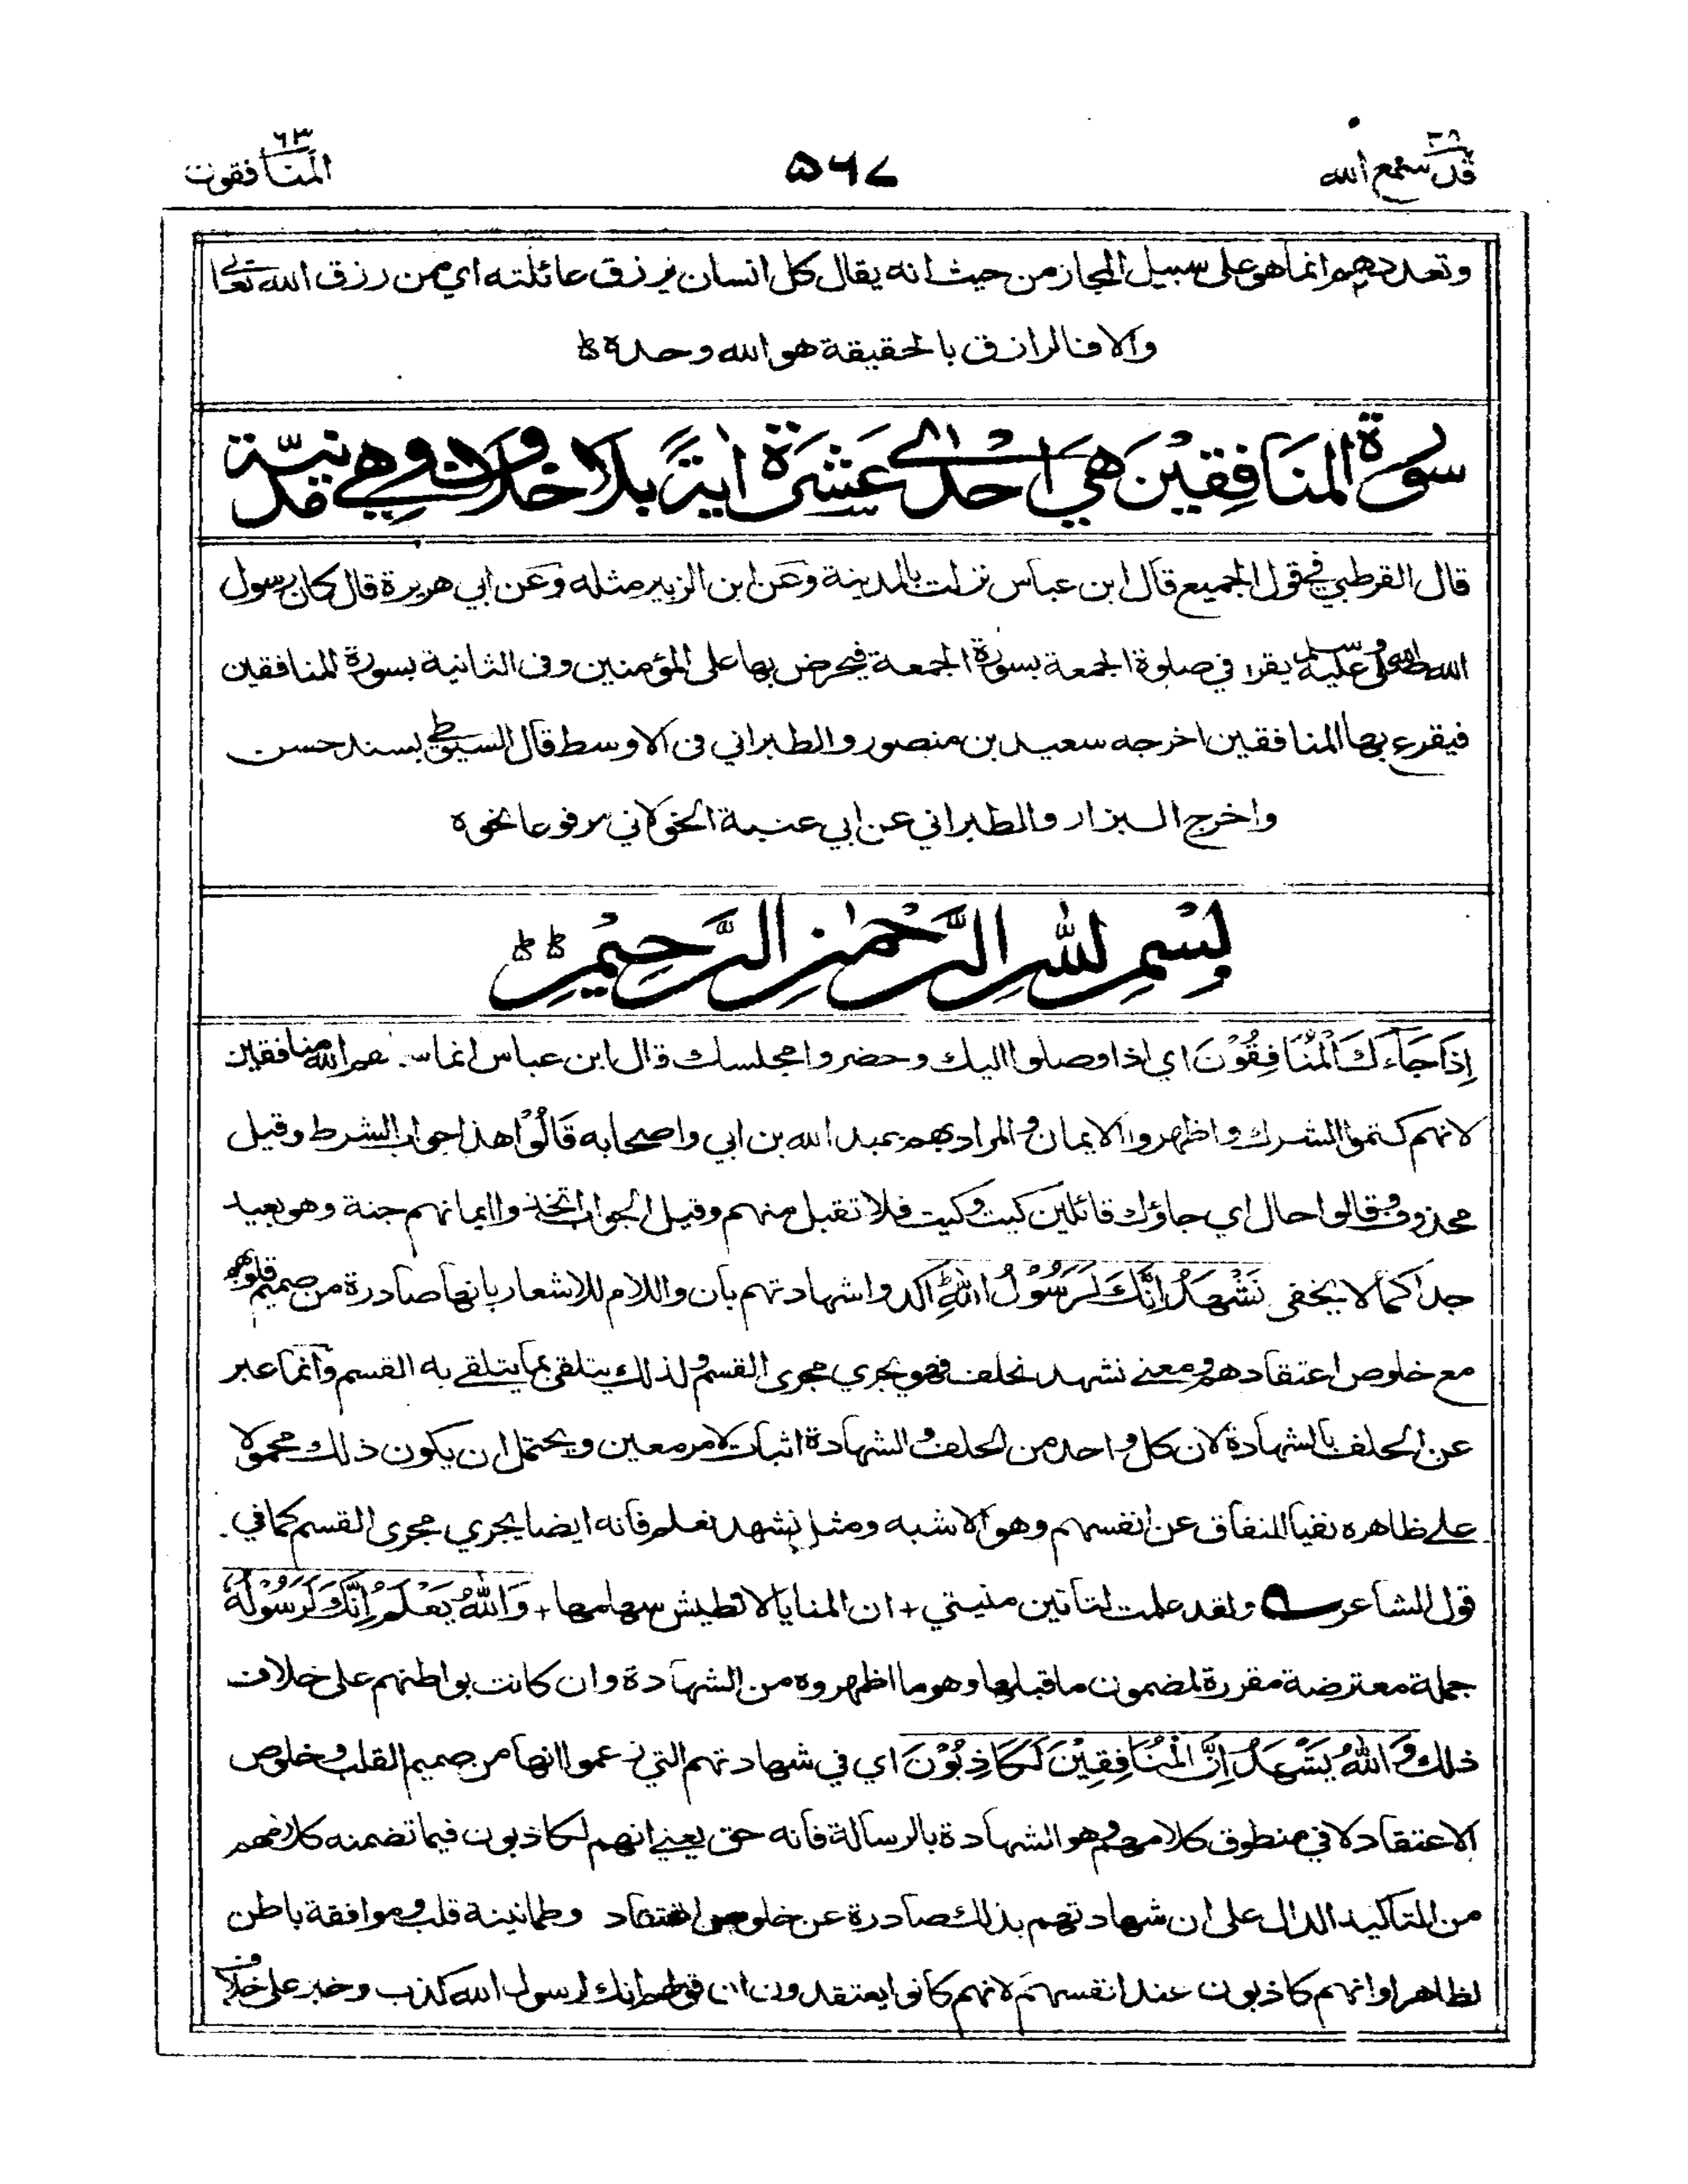 قد سمع الله ٢٨
٥٦٧
المنافقون ٦٣
وتعددهم انما هو على سبيل المجاز من حيث انه يقال كل انسان يرزق عائلته اي من رزق الله تعالى
والا فالرازق بالحقيقة هو الله وحده
سورة المنافقين هي احدى عشرة اية بلا خلاف وهي مدنية
قال القرطبي في قول الجميع قال ابن عباس نزلت بالمدينة وعن ابن الزبير مثله وعن ابي هريرة قال كان رسول
الله صلى الله عليه وسلم يقرا في صلوة الجمعة بسورة الجمعة فيحرض بها على المؤمنين وفى الثانية بسورة المنافقين
فيقرع بها المنافقين اخرجه سعيد بن منصور والطبراني فى الاوسط قال السيوطي بسند حسن
واخرج البزار والطبراني عن ابي عنبة الخولاني مرفوعا نحوه
بِسْمِ اللهِ الرَّحْمٰنِ الرَّحِيْمِ
اِذَا جَآءَكَ الْمُنَافِقُوْنَ اي اذا وصلوا اليك وحضروا مجلسك قال ابن عباس انما سماهم الله منافقين
لانهم كتموا الشرك واظهروا الايمان والمراد بهم عبد الله بن ابي واصحابه قَالُوْا هذا جواب الشرط وقيل
محذوف وقالوا حال اي جاؤك قائلين كيت وكيت فلا تقبل منهم وقيل الجواب اتخذوا ايمانهم جنة وهو بعيد
جدا كما لا يخفى نَشْهَدُ اِنَّكَ لَرَسُوْلُ اللهِ اكدوا شهادتهم بان واللام للاشعار بانها صادرة من صميم قلوبهم
مع خلوص اعتقادهم ومعنے نشهد نحلف فهو يجري مجرى القسم ولذلك يتلقى بما يتلقے به القسم وانما عبر
عن الحلف بالشهادة لان كل واحد من الحلف والشهادة اثبات لامر معين ويحتمل ان يكون ذلك محمولا
علے ظاهره نفيا للنفاق عن انفسهم وهو الاشبه ومثل نشهد نعلم فانه ايضا يجري مجرى القسم كما في
قول الشاعر ولقد علمت لتاتين منيتي + ان المنايا لا تطيش سهامها + وَاللهُ يَعْلَمُ اِنَّكَ لَرَسُوْلُهُ
جملة معترضة مقررة لمضمون ما قبلها وهو ما اظهروه من الشهادة وان كانت بواطنهم على خلاف
ذلك وَاللهُ يَشْهَدُ اِنَّ الْمُنَافِقِيْنَ لَكَاذِبُوْنَ اي في شهادتهم التي زعموا انها من صميم القلب وخلوص
الاعتقاد لا في منطوق كلامهم وهو الشهادة بالرسالة فانه حق يعني انهم لكاذبون فيما تضمنه كلامهم
من التاكيد الدال على ان شهادتهم بذلك صادرة عن خلوص اعتقاد وطمانينة قلب وموافقة باطن
لظاهر او انهم كاذبون عند انفسهم لانهم كانوا يعتقدون ان قولهم انك لرسول الله كذب وخبر على خلاف